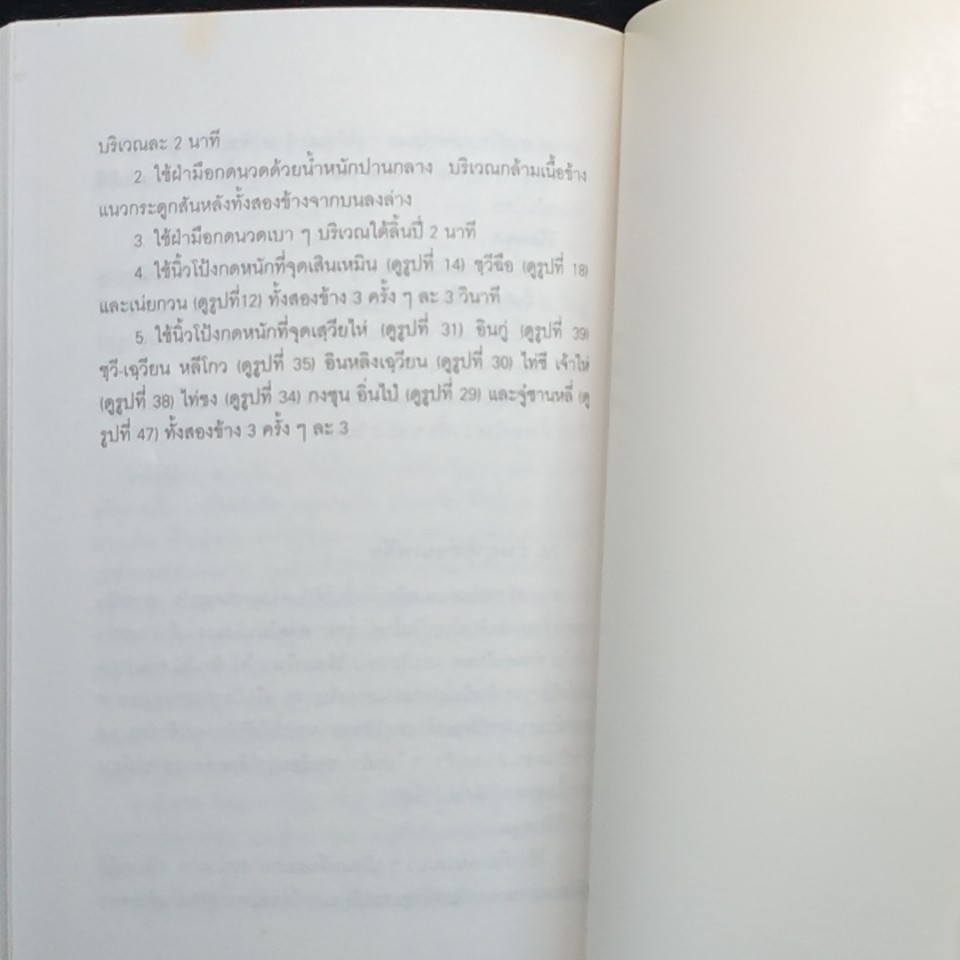 บริเวณละ 2 นาที
2. ใช้ฝ่ามือกดนวดด้วยน้ำหนักปานกลาง บริเวณกล้ามเนื้อข้าง
แนวกระดูกสันหลังทั้งสองข้างจากบนลงล่าง
3. ใช้ฝ่ามือกดนวดเบา ๆ บริเวณใต้ลิ้นปี่ 2 นาที
4. ใช้นิ้วโป้งกดหนักที่จุดเสินเหมิน (ดูรูปที่ 14) ซฺวีฉือ (ดูรูปที่ 18)
และเน่ยกวน (ดูรูปที่12) ทั้งสองข้าง 3 ครั้ง ๆ ละ 3 วินาที
5. ใช้นิ้วโป้งกดหนักที่จุดเสฺวียไห่ (ดูรูปที่ 31) อินกู่ (ดูรูปที่ 39)
ซฺวี-เฉฺวียน หลีโกว (ดูรูปที่ 35) อินหลิงเฉฺวียน (ดูรูปที่ 30) ไท่ซี เจ้าไห่
(ดูรูปที่ 38) ไท่ชง (ดูรูปที่ 34) กงซุน อิ่นไป๋ (ดูรูปที่ 29) และจู๋ซานหลี่ (ดู
รูปที่ 47) ทั้งสองข้าง 3 ครั้ง ๆ ละ 3